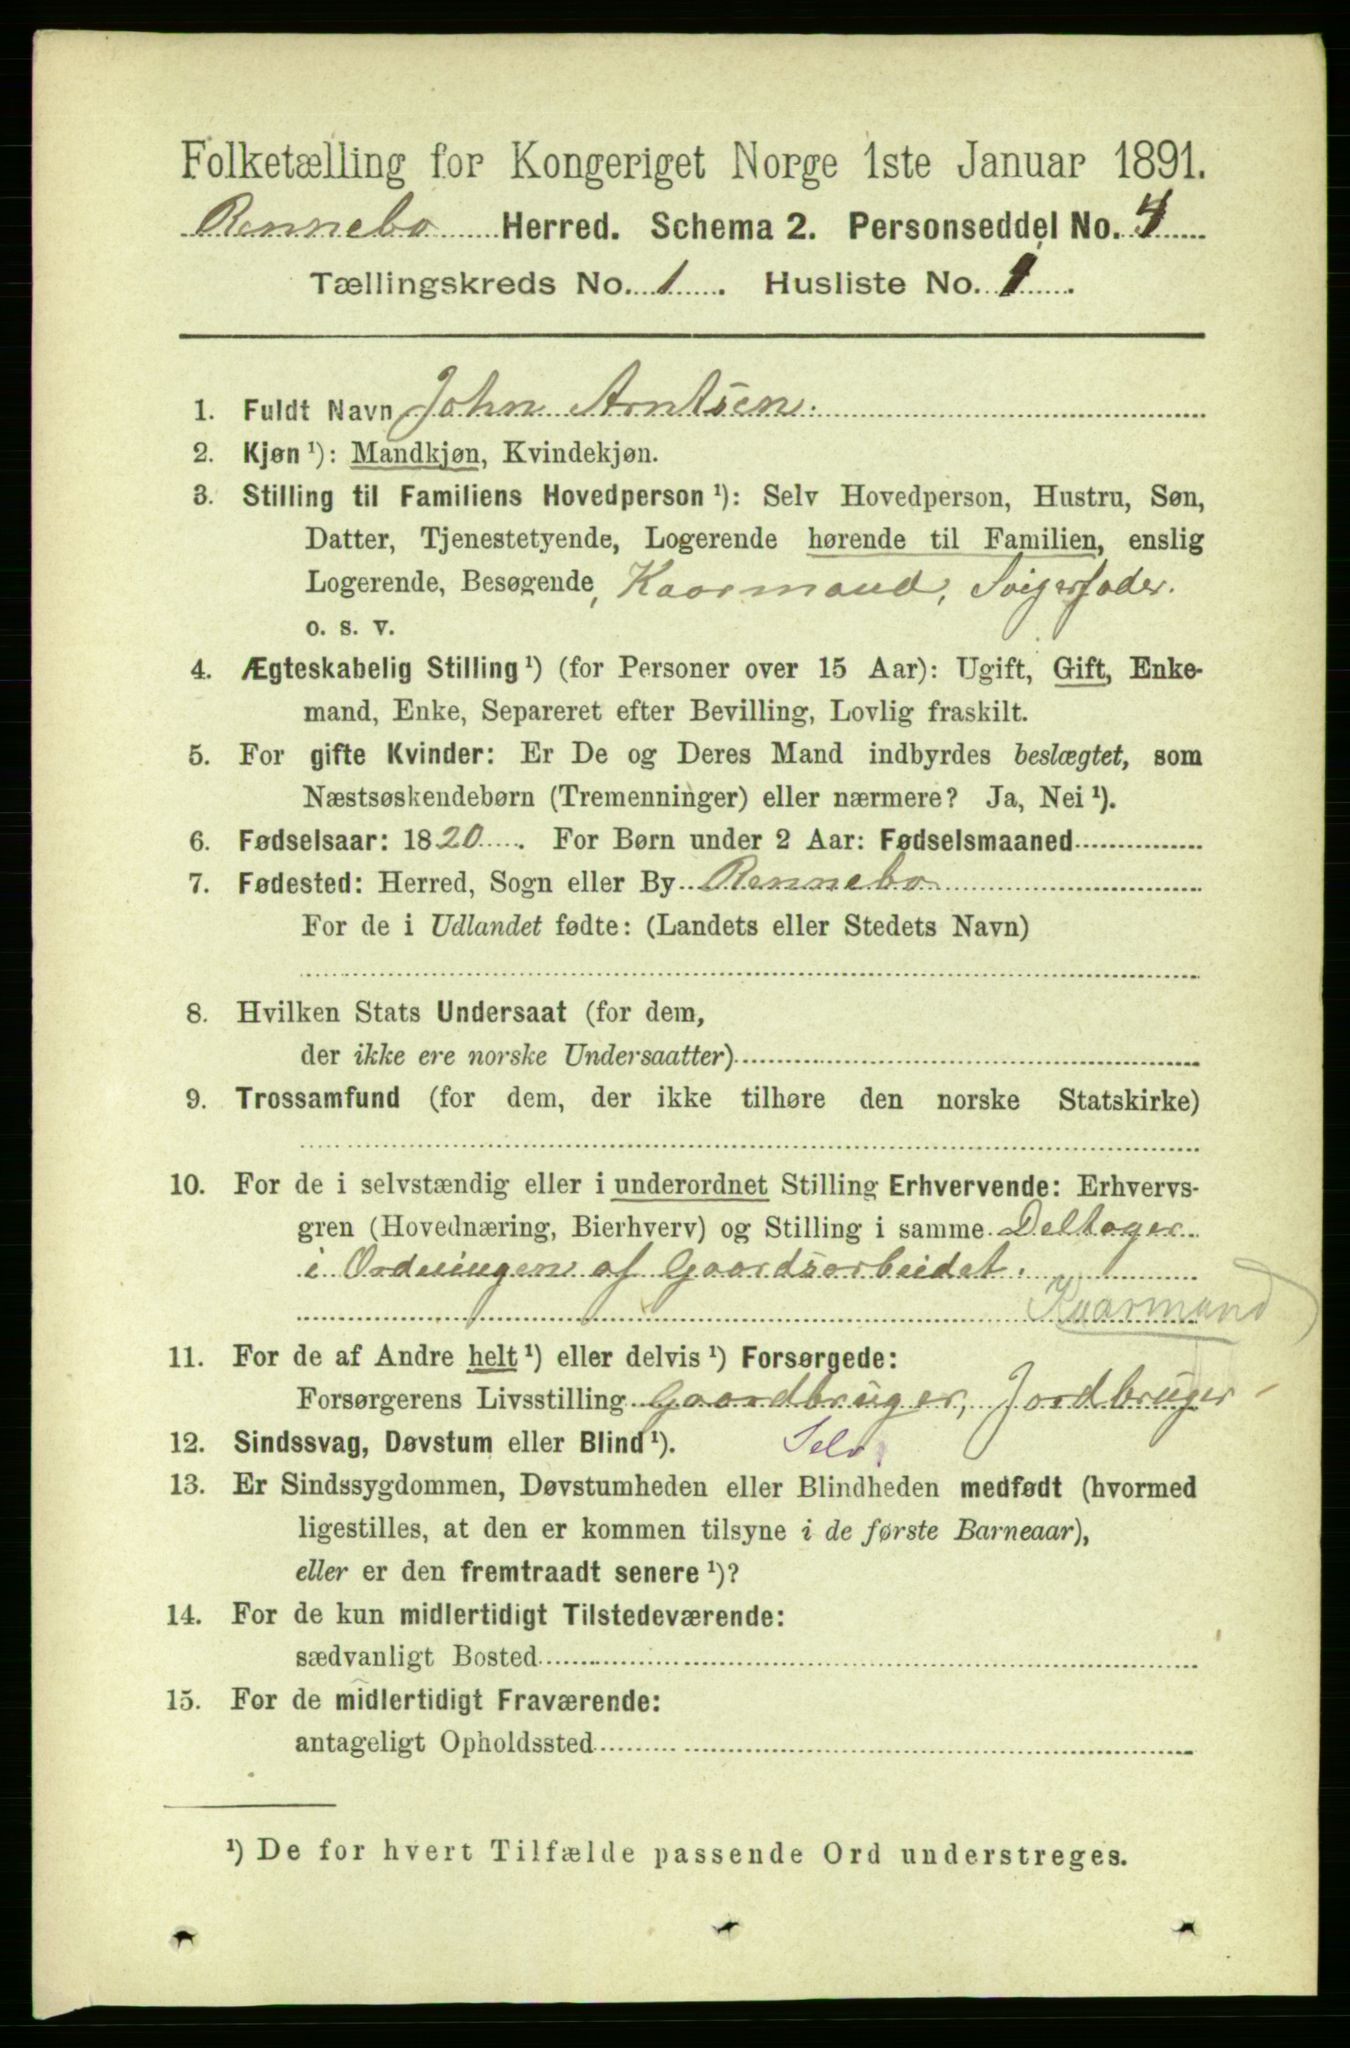 Folketælling for Kongeriget Norge 1ste Januar 1891.
Rennebo Herred. Schema 2. Personseddel No. 4
Tællingskreds No. 1. Husliste No. 1.
1. Fuldt Navn John Arntsen.
2. Kjøn ¹): Mandkjøn, Kvindekjøn.
3. Stilling til Familiens Hovedperson ¹): Selv Hovedperson, Hustru, Søn,
Datter, Tjenestetyende, Logerende hørende til Familien, enslig
Logerende, Besøgende, Kaarmand, Svigerfader.
o. s. v.
4. Ægteskabelig Stilling ¹) (for Personer over 15 Aar): Ugift, Gift, Enke-
mand, Enke, Separeret efter Bevilling, Lovlig fraskilt.
5. For gifte Kvinder: Er De og Deres Mand indbyrdes beslægtet, som
Næstsøskendebørn (Tremenninger) eller nærmere? Ja, Nei ¹).
6. Fødselsaar: 1820. For Børn under 2 Aar: Fødselsmaaned
7. Fødested: Herred, Sogn eller By Rennebo
For de i Udlandet fødte: (Landets eller Stedets Navn)
8. Hvilken Stats Undersaat (for dem,
der ikke ere norske Undersaatter)
9. Trossamfund (for dem, der ikke tilhøre den norske Statskirke)
10. For de i selvstændig eller i underordnet Stilling Erhvervende: Erhvervs-
gren (Hovednæring, Bierhverv) og Stilling i samme Deltager
i Ordningen af Gaardsarbeidet.
Kaarmand
11. For de af Andre helt ¹) eller delvis ¹) Forsørgede:
Forsørgerens Livsstilling Gaardbruger, Jordbruger
12. Sindssvag, Døvstum eller Blind ¹). Selv.
13. Er Sindssygdommen, Døvstumheden eller Blindheden medfødt (hvormed
ligestilles, at den er kommen tilsyne i de første Barneaar),
eller er den fremtraadt senere ¹)?
14. For de kun midlertidigt Tilstedeværende:
sædvanligt Bosted
15. For de midlertidigt Fraværende:
antageligt Opholdssted
¹) De for hvert Tilfælde passende Ord understreges.